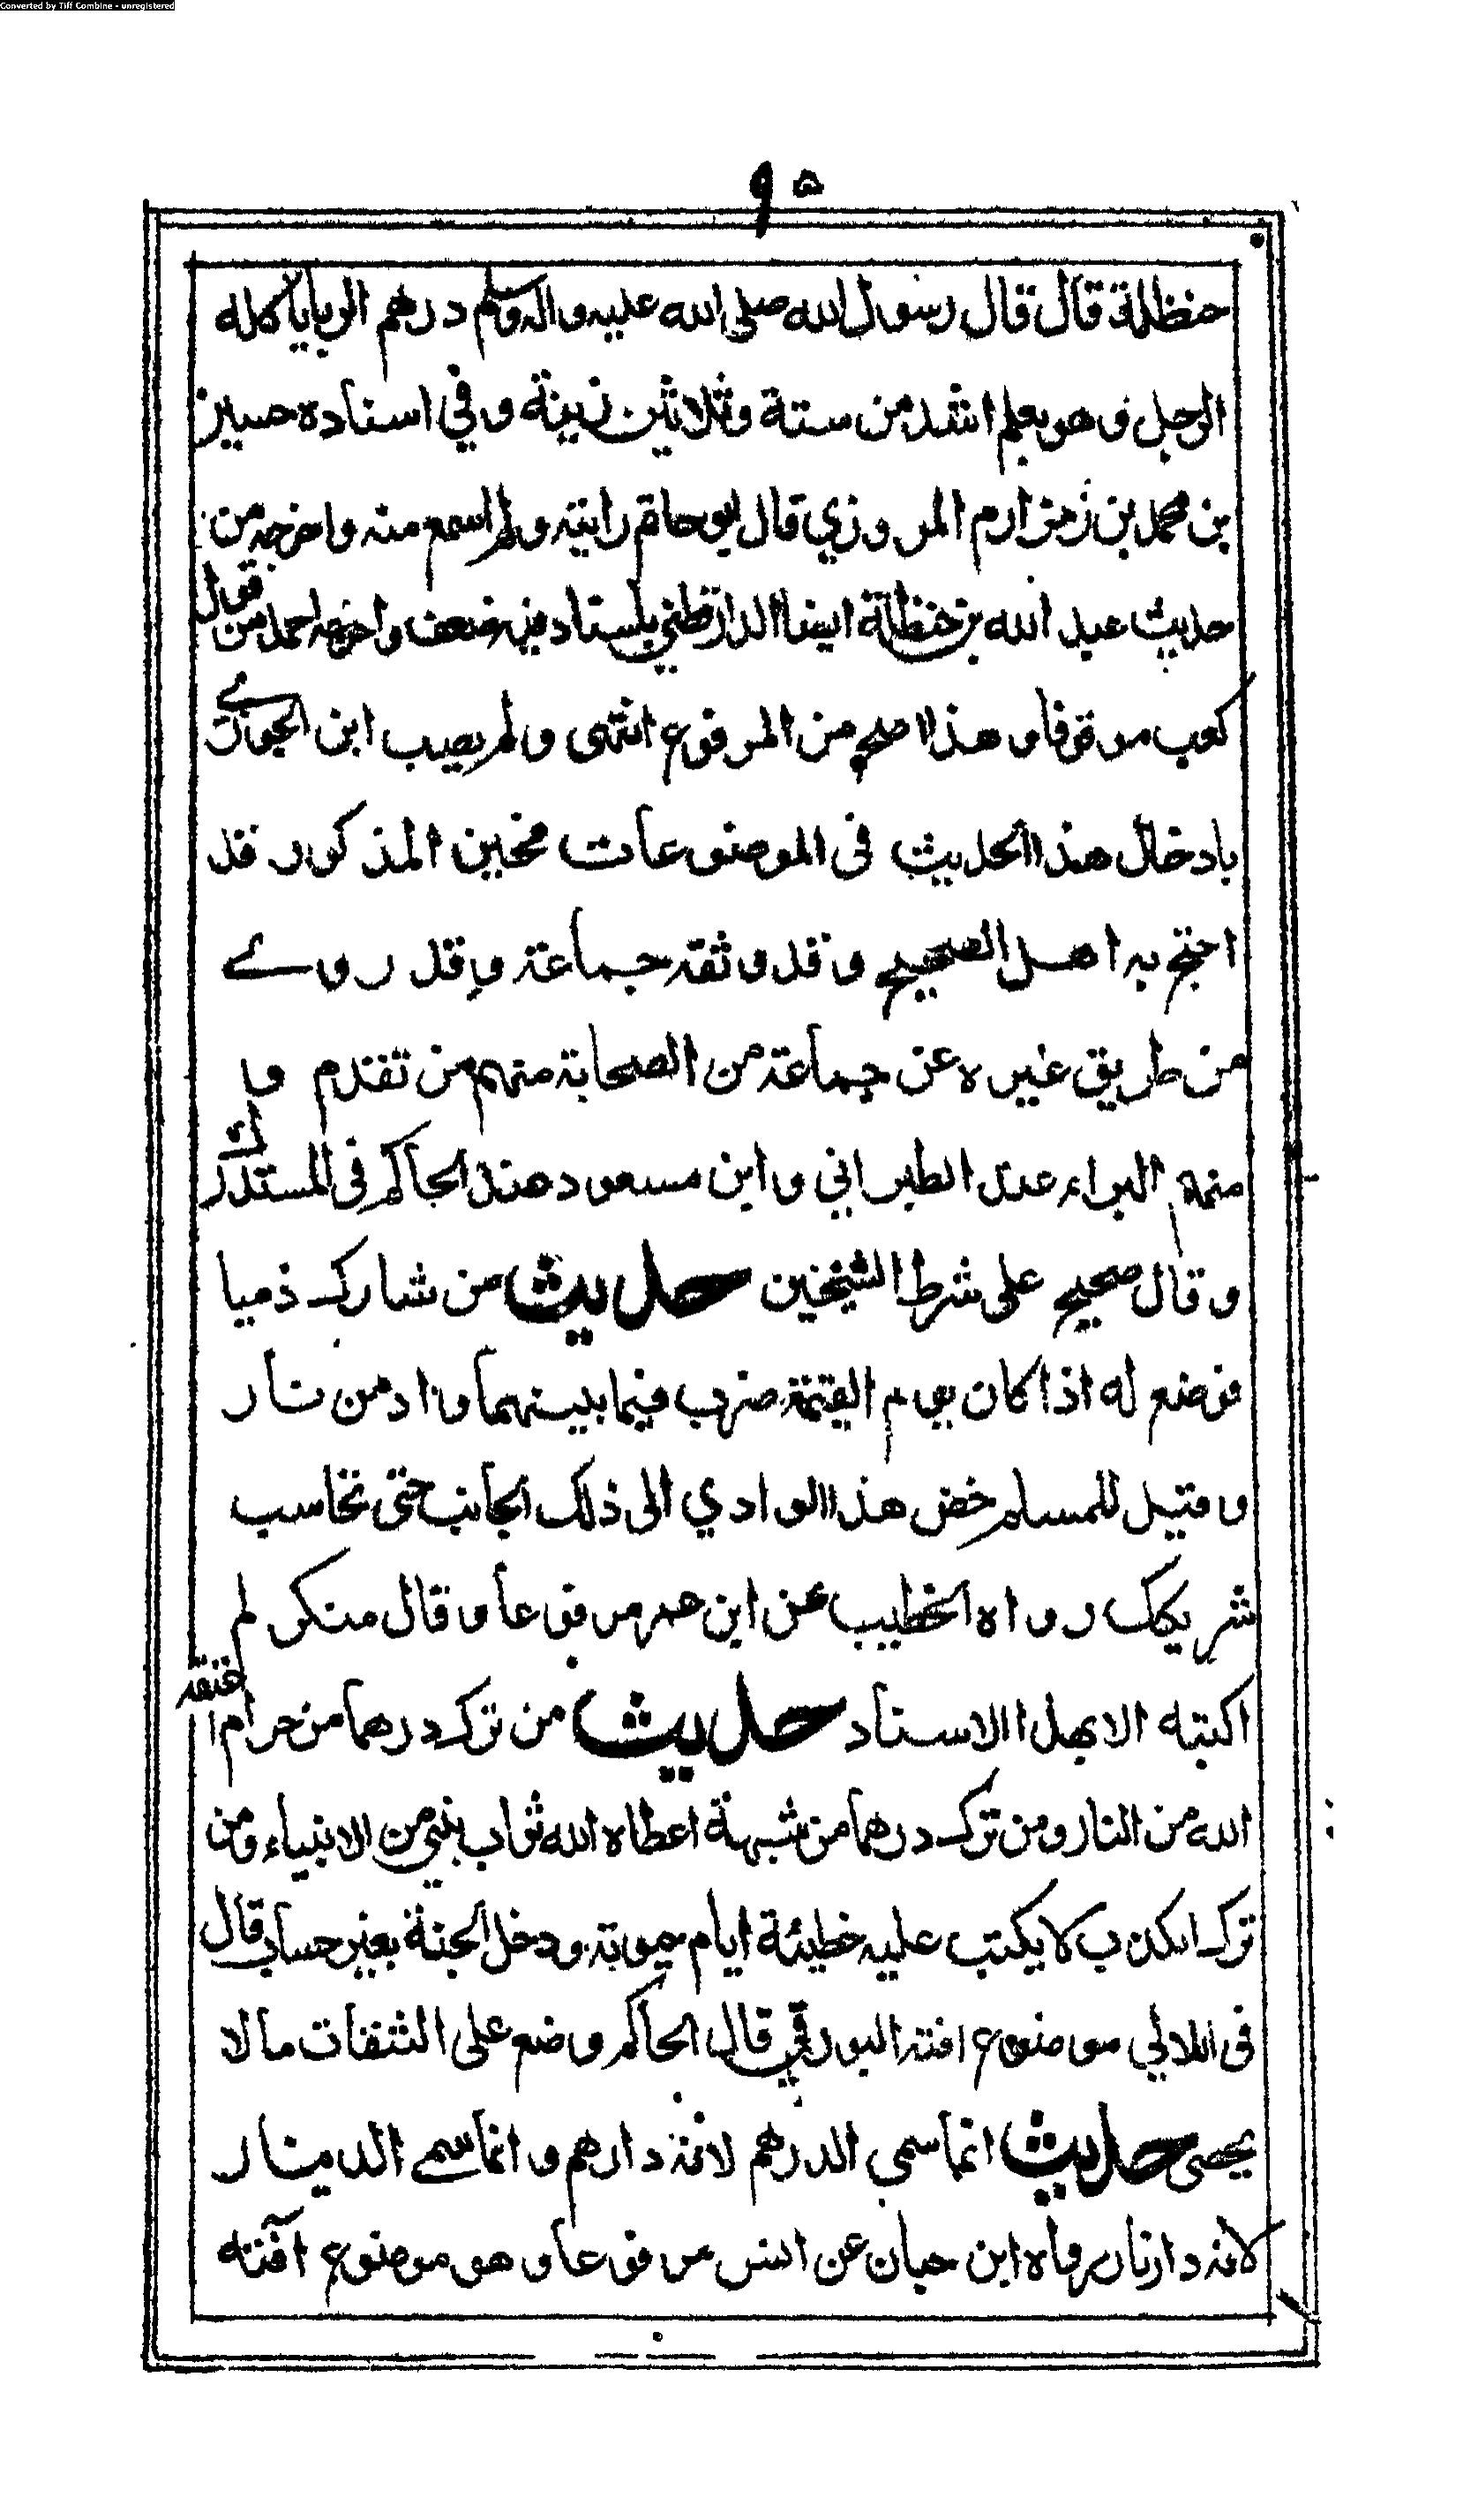 Converted by Tiff Combine - unregistered
٩٥
حنظلة قال قال رسول الله صلى الله عليه واله وسلم درهم الربا ياكله
الرجل وهو يعلم اشد من ستة وثلاثين زنية وفي اسناده حسين
بن محمد بن بهرام المروزي قال ابو حاتم رايته ولم اسمع منه واخرجه من
حديث عبد الله بن حنظلة ايضا الدارقطني باسناد فيه ضعف واخرجه احمد من قول
كعب موقوفا وهذا اصح من المرفوع انتهى ولم يصب ابن الجوزي
بادخال هذا الحديث فى الموضوعات فحسين المذكور قد
احتج به اهل الصحيح وقد وثقه جماعة وقد روے
من طريق غيره عن جماعة من الصحابة منهم من تقدم و
منهم البراء عند الطبراني وابن مسعود عند الحاكم فى المستدرك
وقال صحيح على شرط الشيخين حديث من شارك ذميا
فوضع له اذا كان يوم القيمة ضرب فيما بينهما واد من نار
وقيل للمسلم خض هذا الوادي الى ذلك الجانب حتى تحاسب
شريكك رواه الخطيب عن ابن عمر مرفوعا وقال منكر لم
اكتبه الا بهذا الاسناد حديث من ترك درهما من حرام اعتقه
الله من النار ومن ترك درهما من شبهة اعطاه الله ثواب نبي من الانبياء ومن
ترك الكذب لا يكتب عليه خطيئة ايام حيوته ودخل الجنة بغير حساب قال
فى اللالي موضوع افته البورقي قال الحاكم وضع على الثقات ما لا
يحصى حديث انما سمي الدرهم لانه دارهم وانما سمے الدينار
لانه دار نار رواه ابن حبان عن انس مرفوعا وهو موضوع آفته